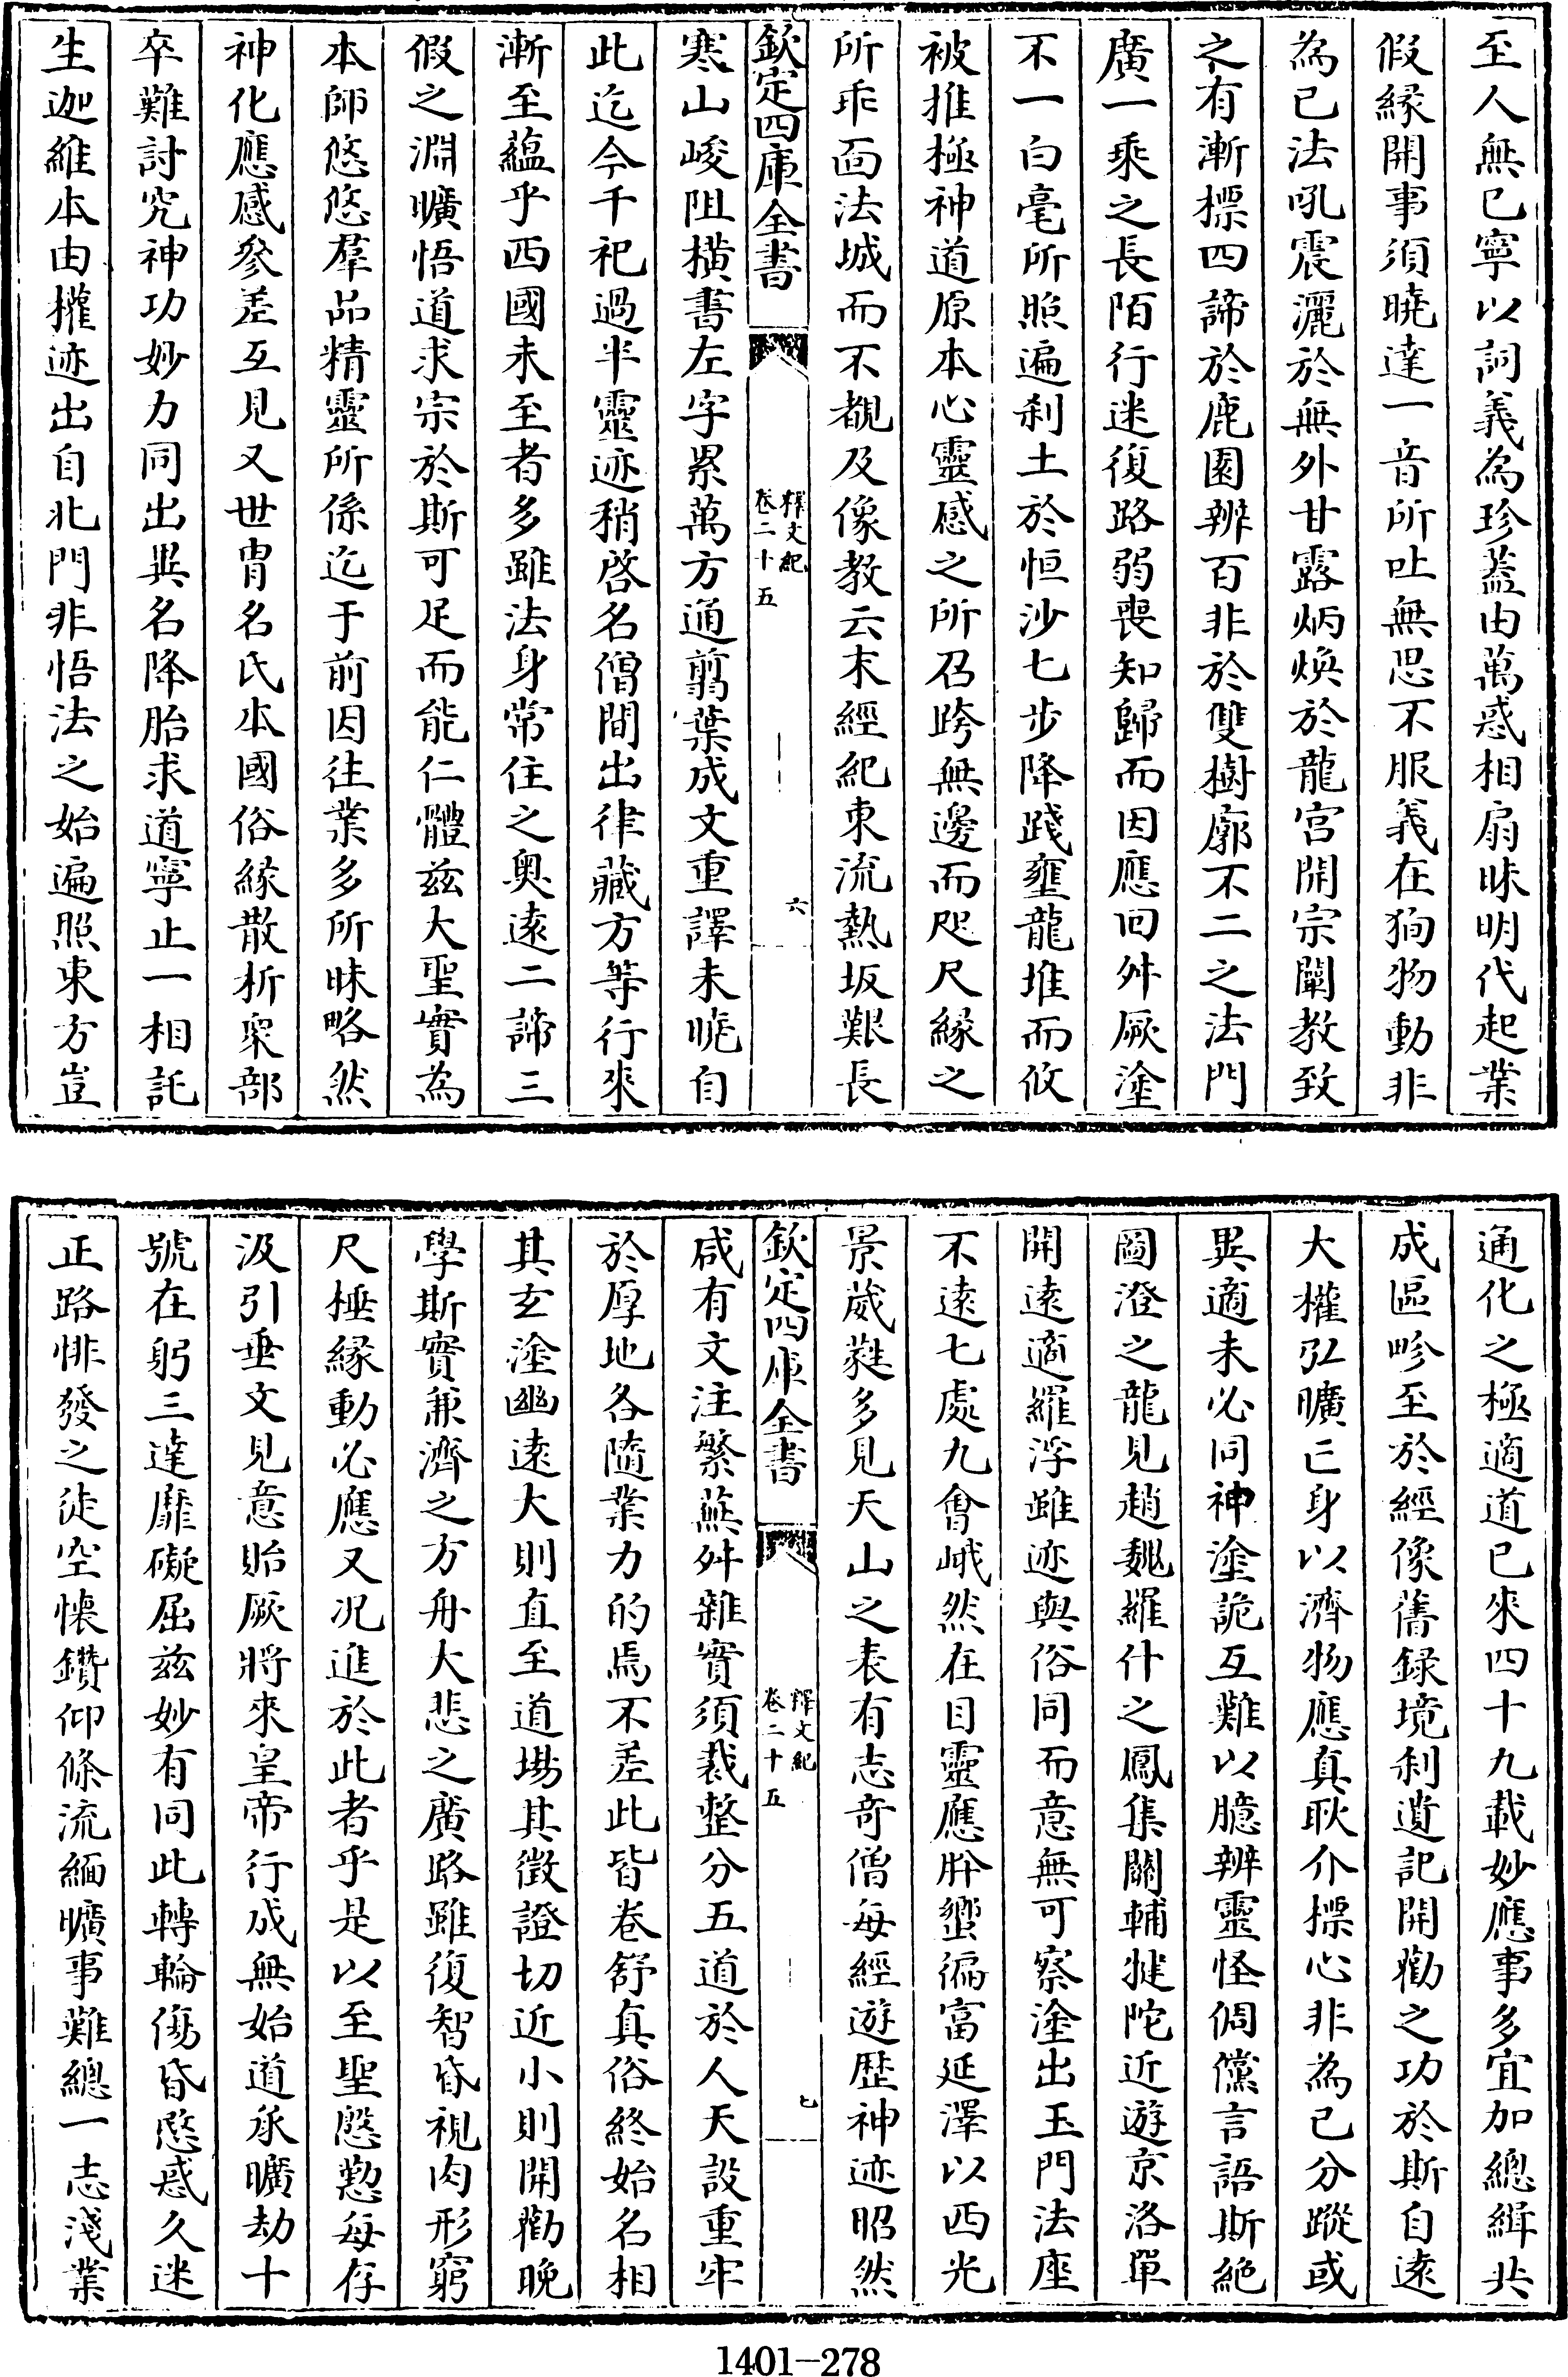 至人無已寧以詞義為珍蓋由萬惑相扇昧明代起業
假緣開事須曉達一音所吐無思不服義在狥物動非
為已法吼震灑於無外甘露炳煥於龍宮開宗闡教致
之有漸摽四諦於鹿園辨百非於雙樹廓不二之法門
廣一乘之長陌行迷復路弱喪知歸而因應回舛厥塗
不一白毫所照遍刹土於恒沙七步降踐壅龍堆而攸
被推極神道原本心靈感之所召跨無邊而咫尺緣之
所乖面法城而不覩及像教云末經紀東流熱坂艱長
欽定四庫全書
釋文紀
卷二十五
六
寒山峻阻橫書左字累萬方通翦葉成文重譯未曉自
此迄今千祀過半靈迹稍啓名僧間出律藏方等行來
漸至蘊乎西國未至者多雖法身常住之奧遠二諦三
假之淵曠悟道求宗於斯可足而能仁體兹大聖實為
本師悠悠羣品精靈所係迄于前因徃業多所昧略然
神化應感參差互見又世胄名氏本國俗緣散析衆部
卒難討究神功妙力同出異名降胎求道寧止一相託
生迦維本由權迹出自北門非悟法之始遍照東方豈
通化之極適道已來四十九載妙應事多宜加總緝共
成區畛至於經像舊録境刹遺記開勸之功於斯自遠
大權弘曠亡身以濟物應真耿介摽心非為已分蹤或
異適未必同神塗詭互難以臆辨靈怪倜儻言語斯絕
圖澄之龍見趙魏羅什之鳳集關輔犍陀近遊京洛單
開遠適羅浮雖迹與俗同而意無可察塗出玉門法座
不遠七處九會峨然在目靈應肹蠁徧富延澤以西光
景葳蕤多見天山之表有志奇僧每經遊歴神迹昭然
欽定四庫全書
釋文紀
卷二十五
七
咸有文注繁蕪舛雜實須裁整分五道於人天設重牢
於厚地各隨業力的焉不差此皆卷舒真俗終始名相
其玄塗幽遠大則直至道塲其徵證切近小則開勸晚
學斯實兼濟之方舟大悲之廣路雖復智昏視肉形窮
尺棰緣動必應又况進於此者乎是以至聖慇懃每存
汲引垂文見意貽厥將來皇帝行成無始道承曠劫十
號在躬三達靡礙屈兹妙有同此轉輪傷昏愍惑久迷
正路悱發之徒空懷鑽仰條流緬曠事難總一志淺業
1401-278